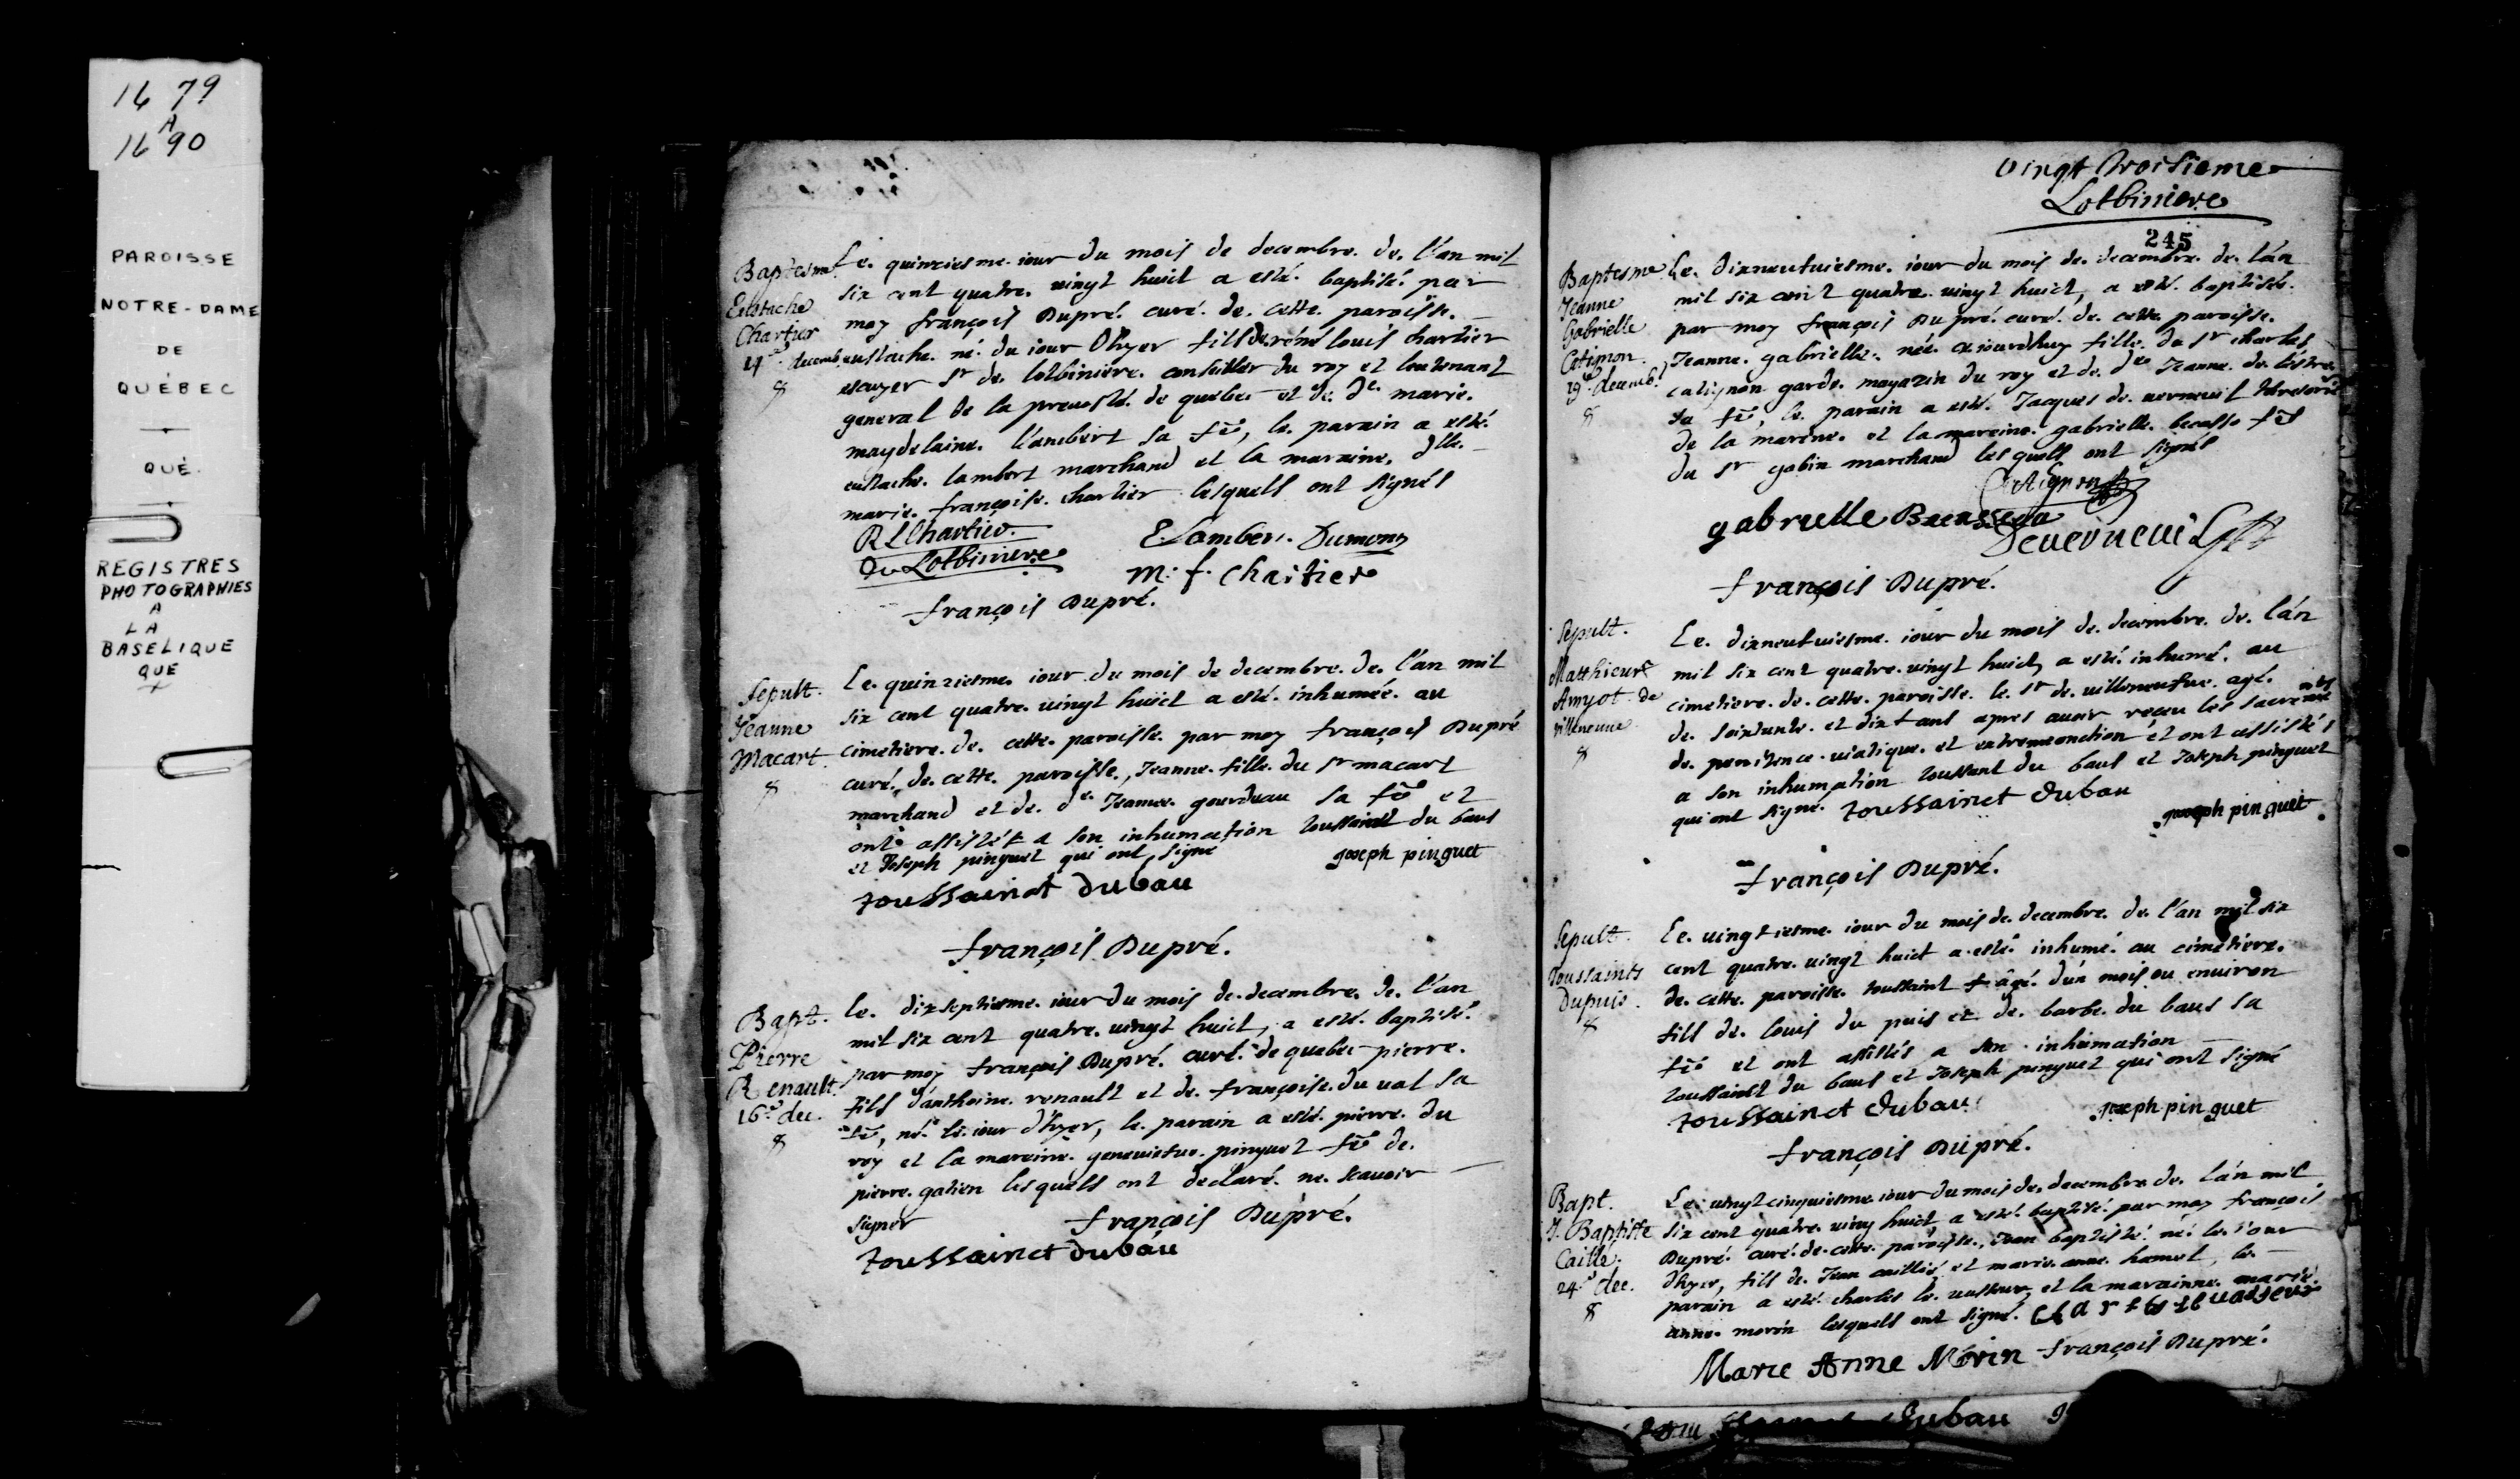 1679
A
1690
PAROISSE
NOTRE-DAME
DE
QUÉBEC
QUÉ.
REGISTRES
PHOTOGRAPHIES
A
LA
BASELIQUE
QUE
Baptesme
Eustache
Chartier
decemb
8
Le quinziesme iour du mois de decembre de l'an mil
six cent quatre vingt huict a esté baptisé par
moy françois Dupré curé de cette paroisse
eustache né du iour d'hyer fils de réné louis chartier
escuyer Sr de lotbiniere conseiller du roy et lieutenant
general de la preuosté de quebec et de de marie
magdelaine lambert sa fe, le parain a esté
eustache lambert marchand et la maraine dlle
marie françoise chartier lesquels ont signés
R L Chartier
De Lotbiniere
E Lambert Dumont
m. f. Chartier
françois Dupré.
Sepult.
Jeanne
Macart.
8
Le quinziesme iour du mois de decembre de l'an mil
six cent quatre vingt huict a esté inhumée au
cimetiere de cette paroisse par moy françois Dupré
curé de cette paroisse, Jeanne fille du sr macart
marchand et de de Jeanne gourdeau sa fe et
ont assistés a son inhumation toussaint du baus
et Joseph pinguet qui ont signé
joseph pinguet
toussainct dubau
françois Dupré.
Bapt.
Pierre
Renault.
16e dec.
8
Le dixseptiesme iour du mois de decembre de l'an
mil six cent quatre vingt huict, a esté baptisé
par moy françois Dupré curé de quebec pierre
fils d'anthoine renault et de françoise du val sa
fe, né le iour d'hyer, le parain a esté pierre du
roy et la maraine geneviefue pinguet fe de
pierre gatien lesquels ont declaré ne scauoir
signer
françois Dupré.
toussainct dubau
vingt troisieme
Lotbiniere
245
Baptesme
Jeanne
Gabrielle
Catignon
19e decemb.
8
Le dixneufuiesme iour du mois de decembre de l'an
mil six cent quatre vingt huict, a esté baptisée
par moy françois Dupré curé de cette paroisse
Jeanne gabrielle née ce iourdhuy fille du sr charles
catignon garde magazin du roy et de de Jeanne de lestre
sa fe, le parain a esté Jacques de verneuil
de la marine et la maraine gabrielle fe
du sr gobin marchand lesquels ont signés
Catignon
gabrielle
Deuerneuil
françois Dupré.
Sepult.
Matthieu
Amyot de
villeneuue
8
Le dixneufuiesme iour du mois de decembre de l'an
mil six cent quatre vingt huict, a esté inhumé au
cimetiere de cette paroisse le sr de villeneufue agé
de soixante et dix ans apres auoir receu les sacremens
de penitence viatique et extremeonction et ont assistés
a son inhumation toussaint du baus et Joseph pinguet
qui ont signé toussainct dubau
joseph pinguet
françois Dupré.
Sepult.
Toussaints
Dupuis.
8
Le vingtiesme iour du mois de decembre de l'an mil six
cent quatre vingt huict a esté inhumé au cimetiere
de cette paroisse toussaint agé d'un mois ou enuiron
fils de louis du puis et de barbe du baus sa
fe et ont assistés a son inhumation
toussainct du baus et Joseph pinguet qui ont signé
toussainct dubau
joseph pinguet
françois Dupré.
Bapt.
J. Baptiste
Caillé.
24e dec.
8
Le vingtcinquiesme iour du mois de decembre de l'an mil
six cent quatre ving huict a esté baptisé par moy françois
Dupré curé de cette paroisse, Jean baptiste né le iour
d'hyer, fils de Jean caillié et marie anne hamel, le
parain a esté charles le vasseur, et la marainne marie
anne morin lesquels ont signé. Charles le vasseur
Marie Anne Morin françois Dupré.
dubau